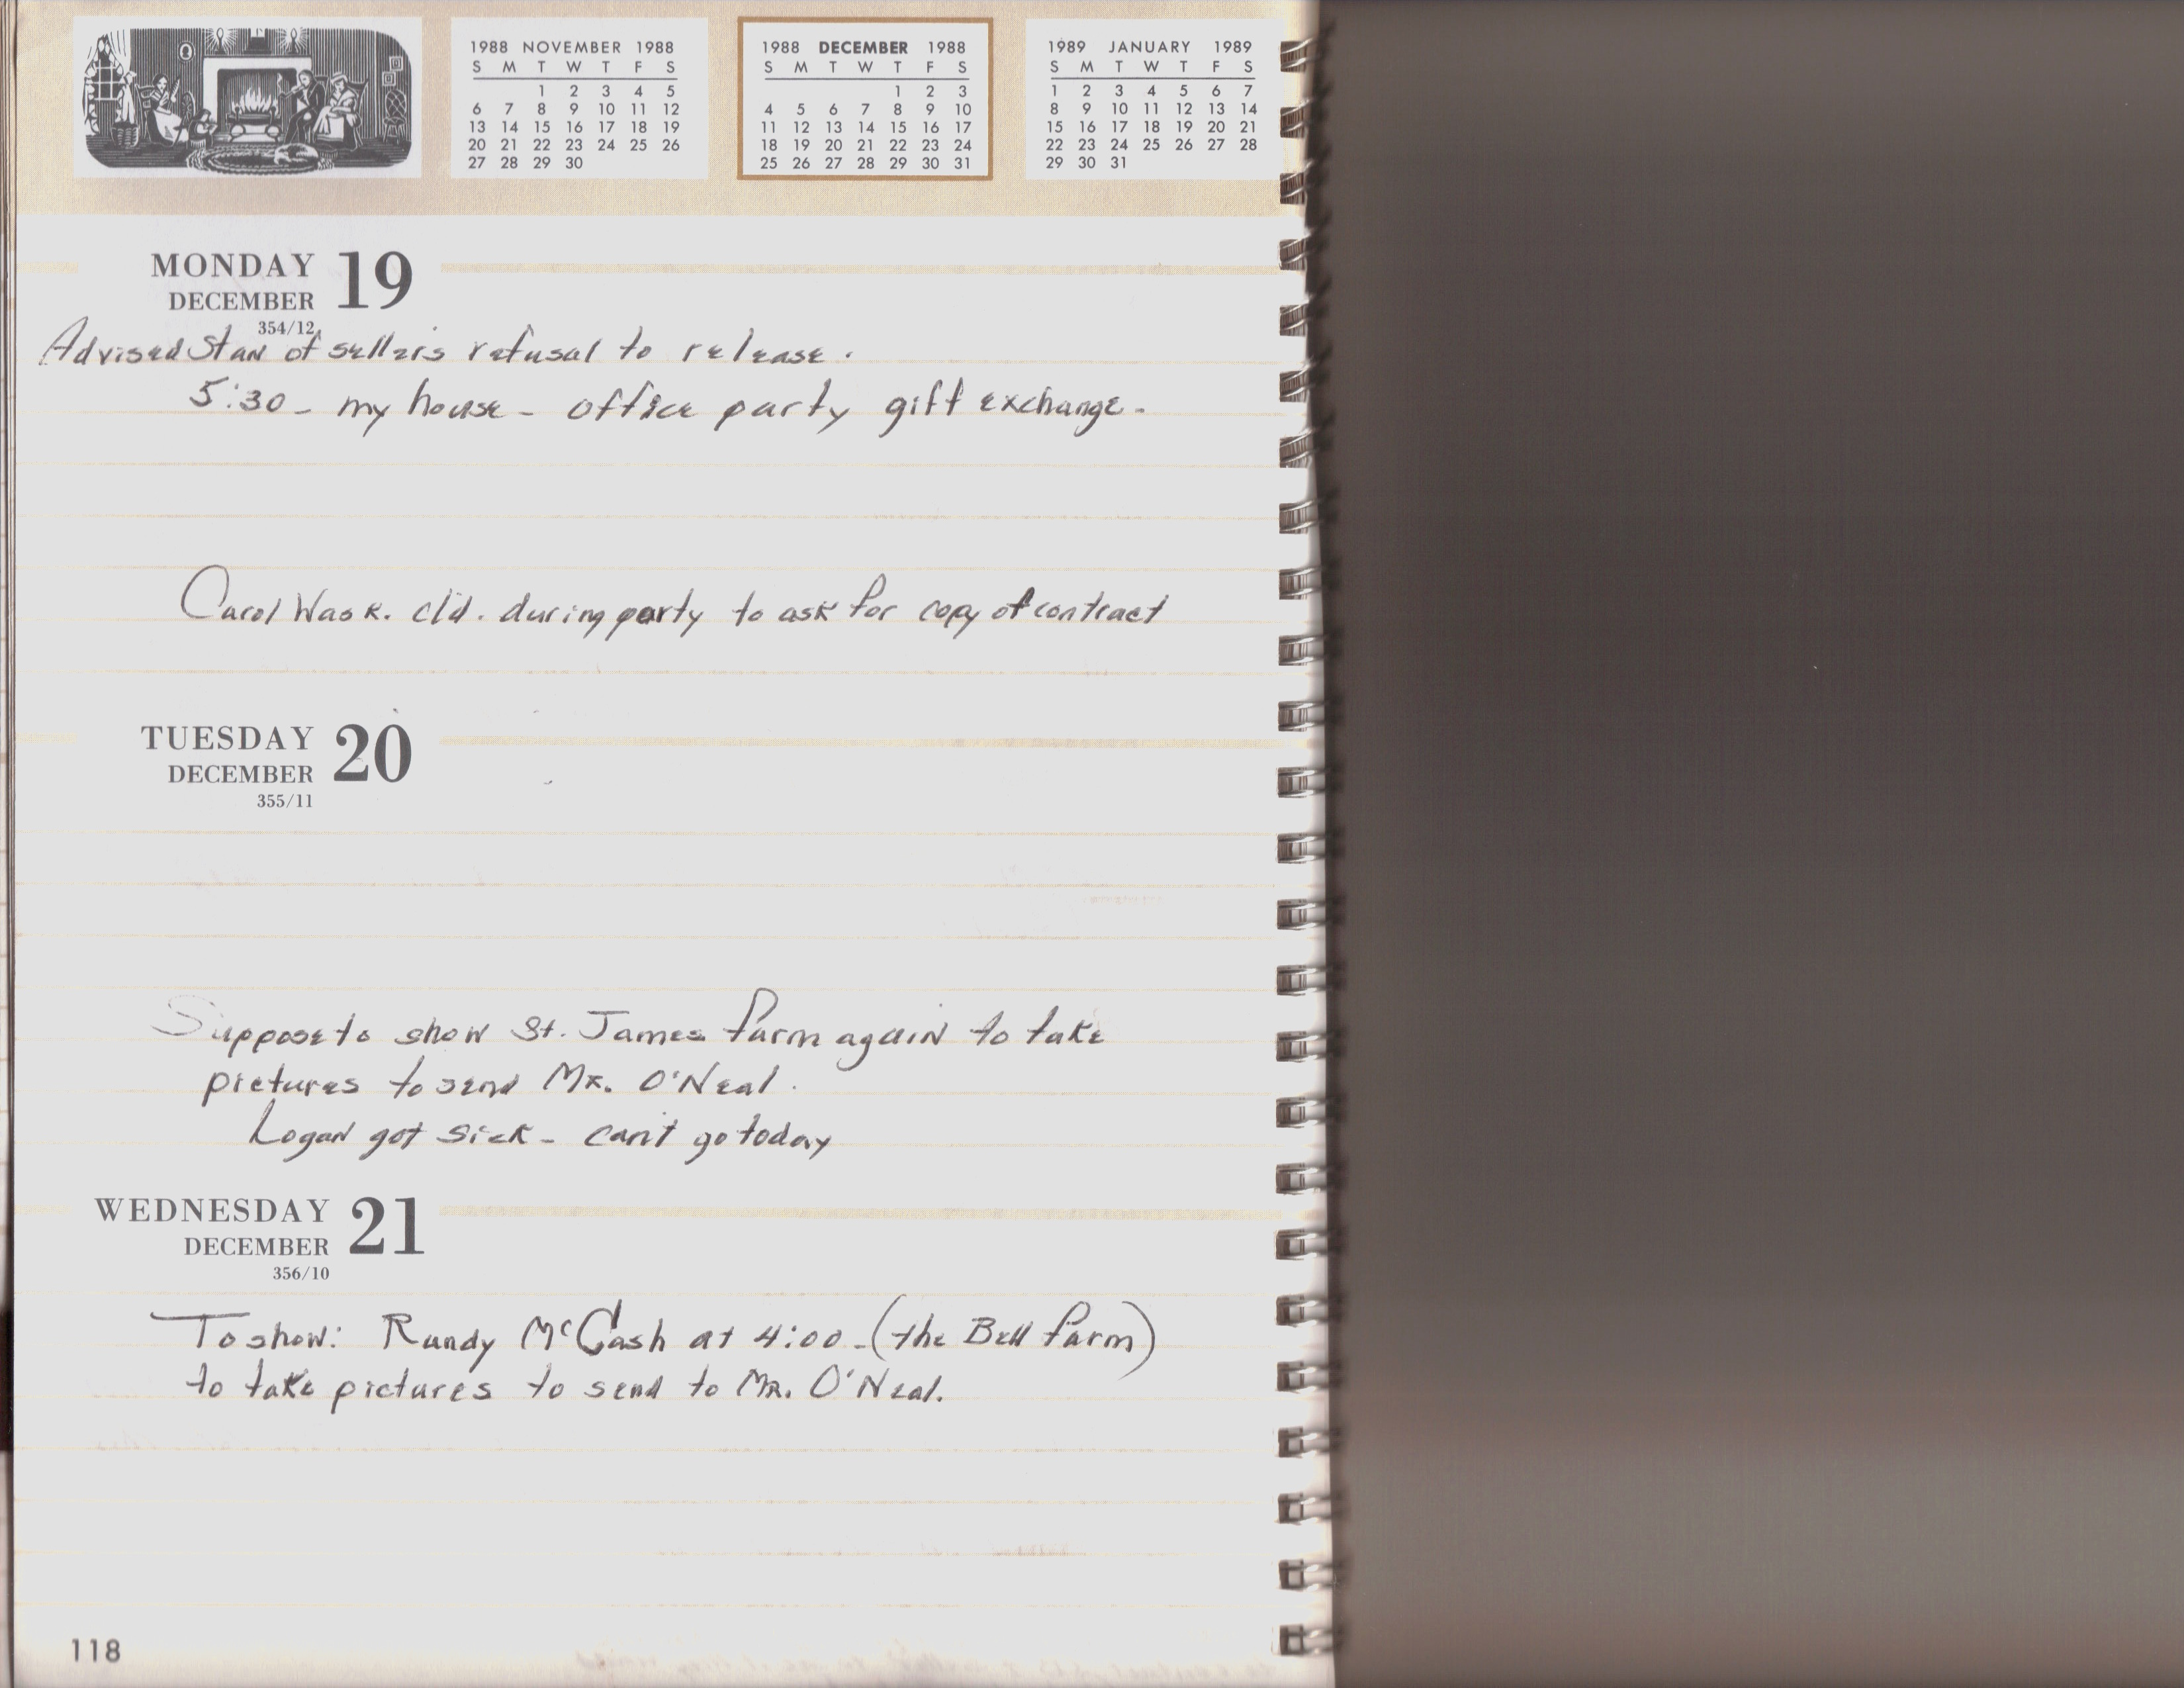 1988 NOVEMBER 1988
S M T W T F S
1 2 3 4 5
6 7 8 9 10 11 12
13 14 15 16 17 18 19
20 21 22 23 24 25 26
27 28 29 30
1988 DECEMBER 1988
S M T W T F S
1 2 3
4 5 6 7 8 9 10
11 12 13 14 15 16 17
18 19 20 21 22 23 24
25 26 27 28 29 30 31
1989 JANUARY 1989
S M T W T F S
1 2 3 4 5 6 7
8 9 10 11 12 13 14
15 16 17 18 19 20 21
22 23 24 25 26 27 28
29 30 31
MONDAY 19
DECEMBER
354/12
Advised Stan of sellers refusal to release.
5:30 - my house - office party gift exchange.
Carol Wask. cld. during party to ask for copy of contract
TUESDAY 20
DECEMBER
355/11
Suppose to show St. James farm again to take
pictures to send Mr. O'Neal.
Logan got sick - can't go today
WEDNESDAY 21
DECEMBER
356/10
To show: Randy McCash at 4:00 - (the Bell farm)
to take pictures to send to Mr. O'Neal.
118